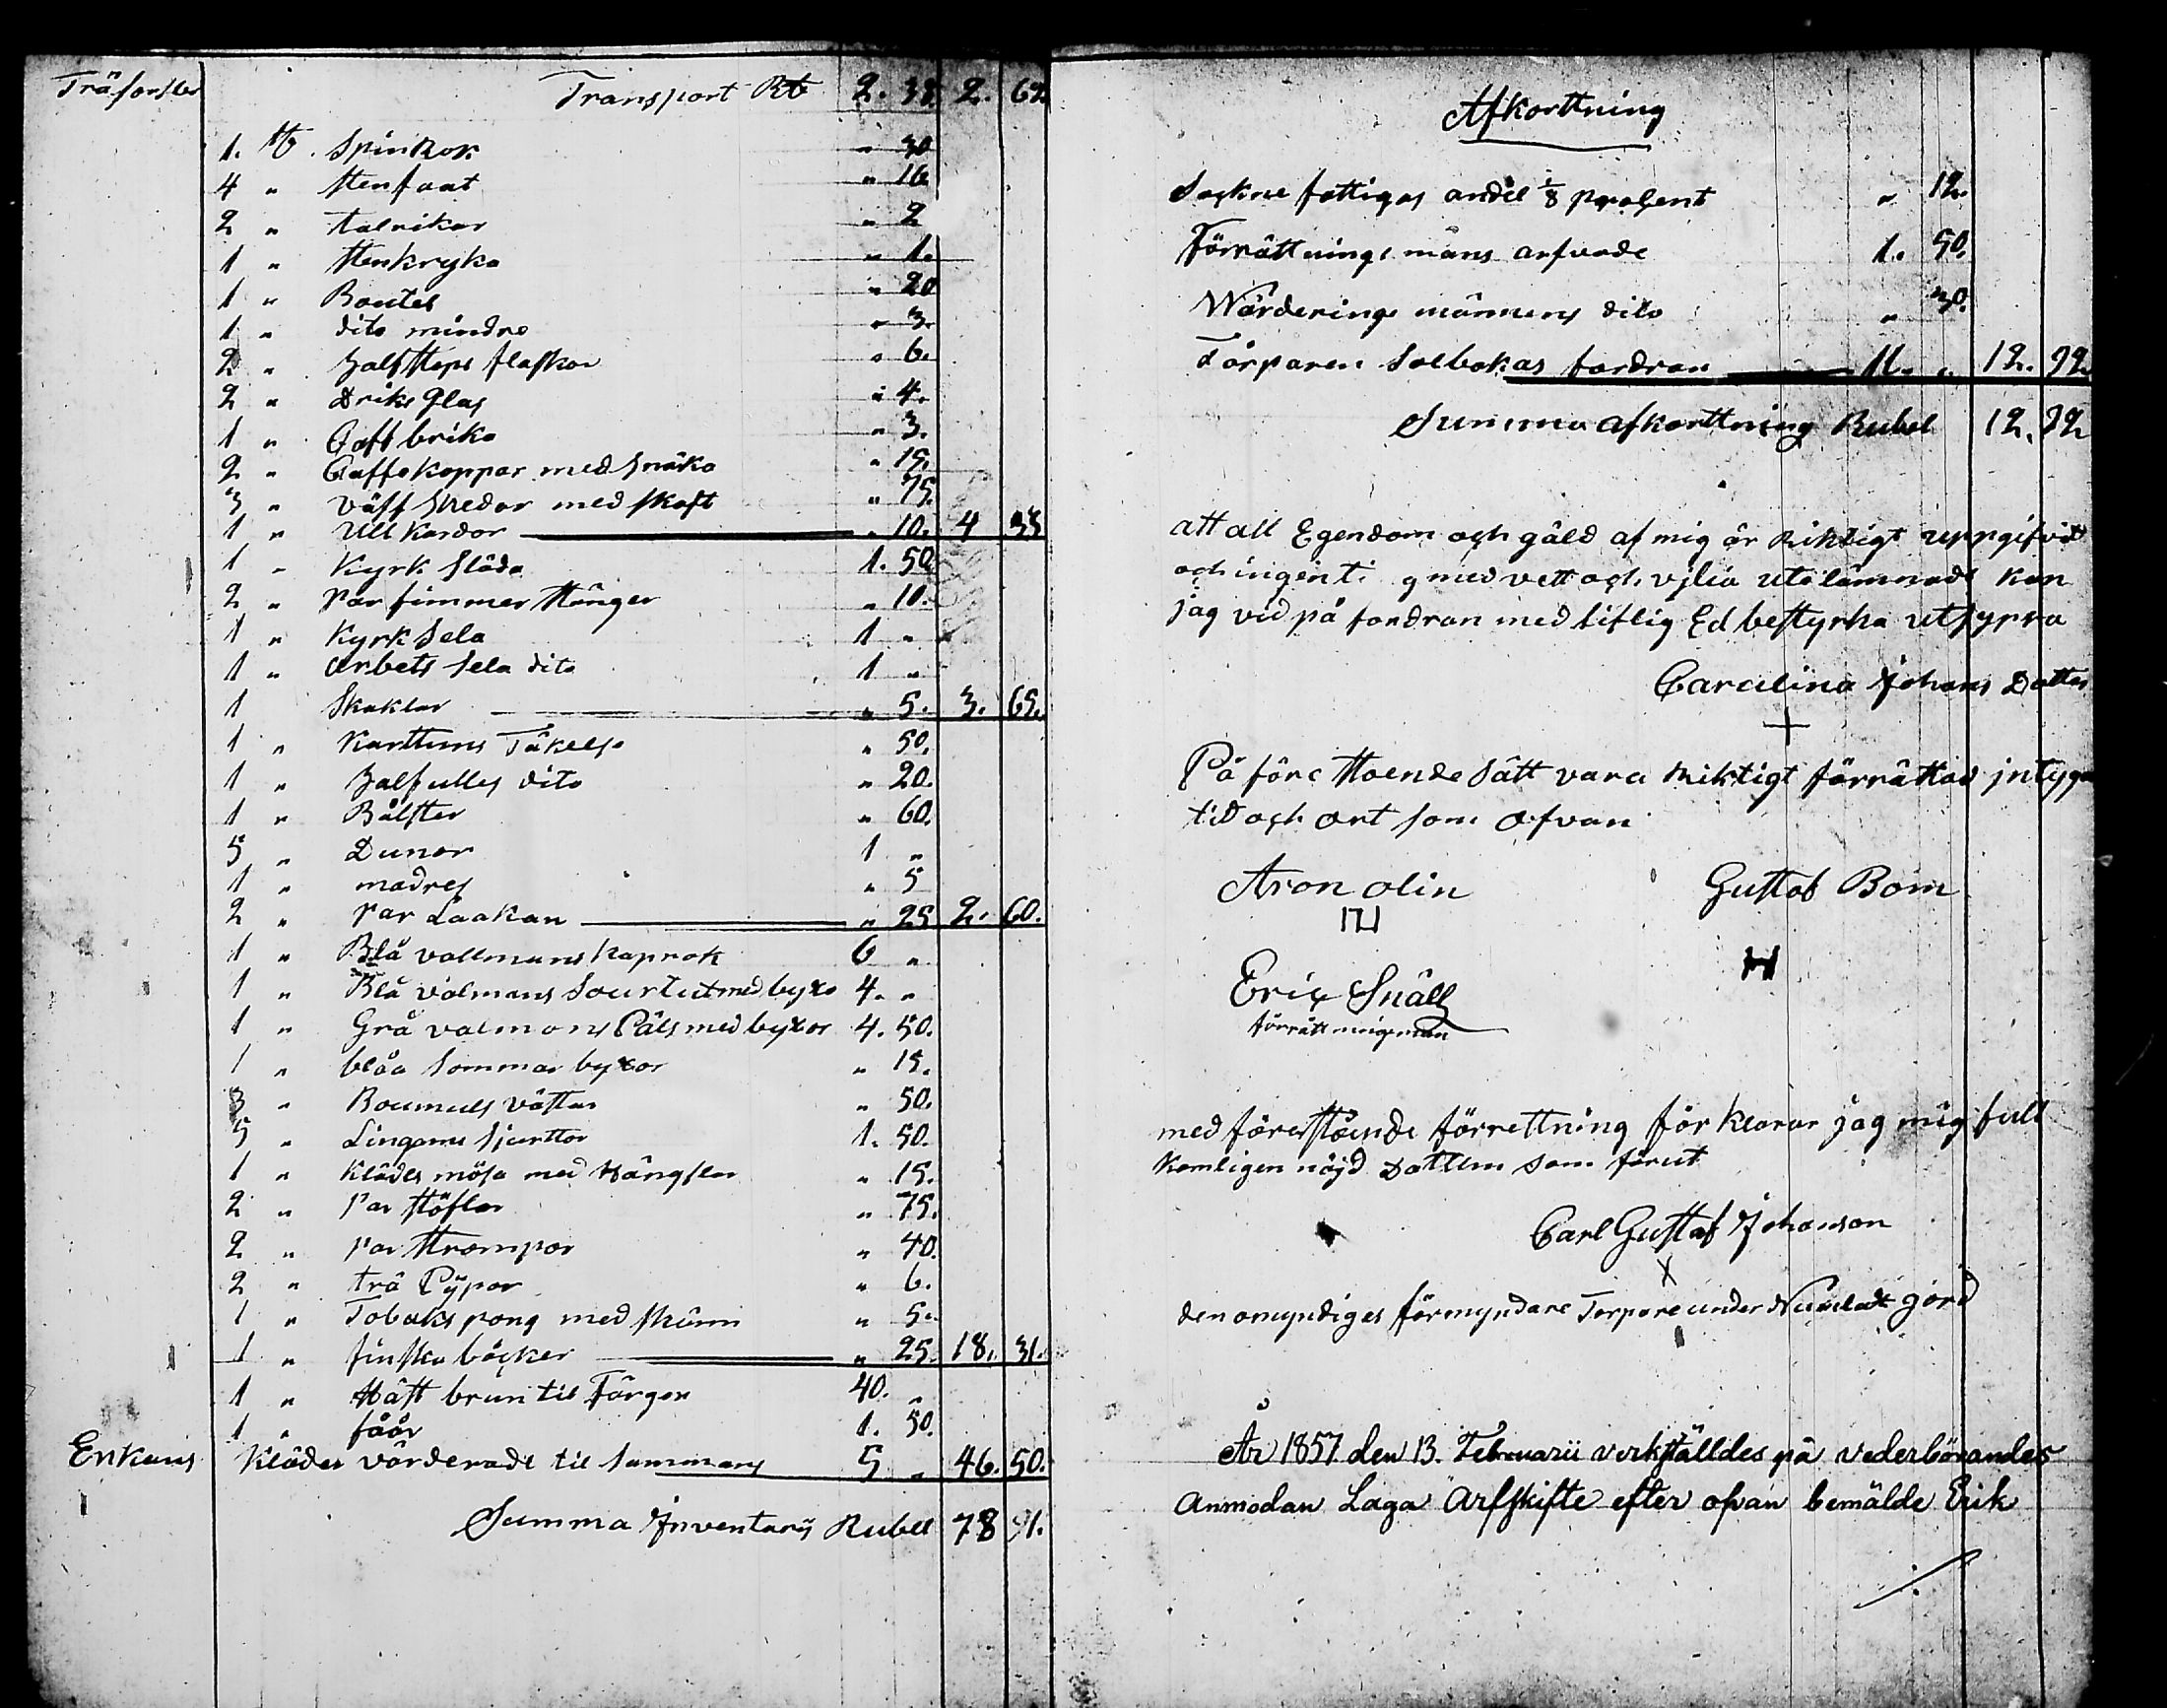 Träsorster Transport Rb 2. 38. 2. 62.
1. st. Spinkor " 30
4 " stenfaat " 16
2 " talrikar " 2
1 " stenkryka " 1.
1 " Boutel " 20
1 " dito mindre " 3.
2 " halfstops flaskor " 6.
2 " Driks glas " 4.
1 " Caffbrika " 3.
2 " Caffekoppar med snäka " 15.
3 " väff skedar med skaft " 75.
1 " Ull kardor " 10. 4 33
1 " Kyrk släda 1. 50.
2 " par fimmer stänger " 10.
1 " Kyrk sela 1 "
1 " arbets sela dito 1 "
1 Skaklar " 5. 3. 65.
1 " Karttuns Täkelse " 50.
1 " halfulles dito " 20.
1 " Bålster " 60.
5 " Dunor 1 "
1 " madres " 5
2 " par Laakan " 25 2. 60.
1 " Blå vallmans kaprok 6 "
1 " Blå valmans Sourtut med byxo 4. "
1 " Grå valmans Päls med byxor 4. 50.
1 " blåa sommar byxor " 15.
3 " Boumuls västar " 50.
5 " Lingarns sjorttor 1. 50.
1 " Klädes mösa med Hängslor " 15.
2 " Par stöflor " 75.
2 " par strompor " 40.
2 " trä Pÿpor " 6.
1 " Tobaks pong med skinn " 5.
1 " finska böcker " 25. 18. 31.
1 " Häst brun til Färgen 40. "
1 " fåår 1. 50.
Enkans Kläder värderade til sammans 5 " 46. 50.
Summa Inventarÿ Rubel 78 91.
Afkorttning
Sockne fattigas andel 1/8 procent " 12.
Förrättnings mans arfvode 1. 50.
Wärderings männens dito " 30.
Torparen Solbokas fordran 11. " 12. 92.
Summa afkorttning Rubel 12. 92
att all Egendom och gäld af mig är riktigt uppgifvit
och ingenti g med vett och vjlia utelämnadt kan
jag vid på fordran med liflig Ed bestyrka utsypra
Carolina Johans Dotter
+
På före stoende sätt vara riktigt förrättad jntyga
tid och ort som ofvan
Aron Olin Gustaf Bom
Eric Snäll
förrättningsman
med före stoende förrettning för klarar jag mig full
komligen nöjd Dattum som förut
Carl Gustaf Johanson
X
den omyndiges förmyndare Torpare under Numlax gård
År 1857 den 13. Februarii verkställdes på vederbörandes
Anmodan Laga Arfskifte efter ofvan bemälde Erik